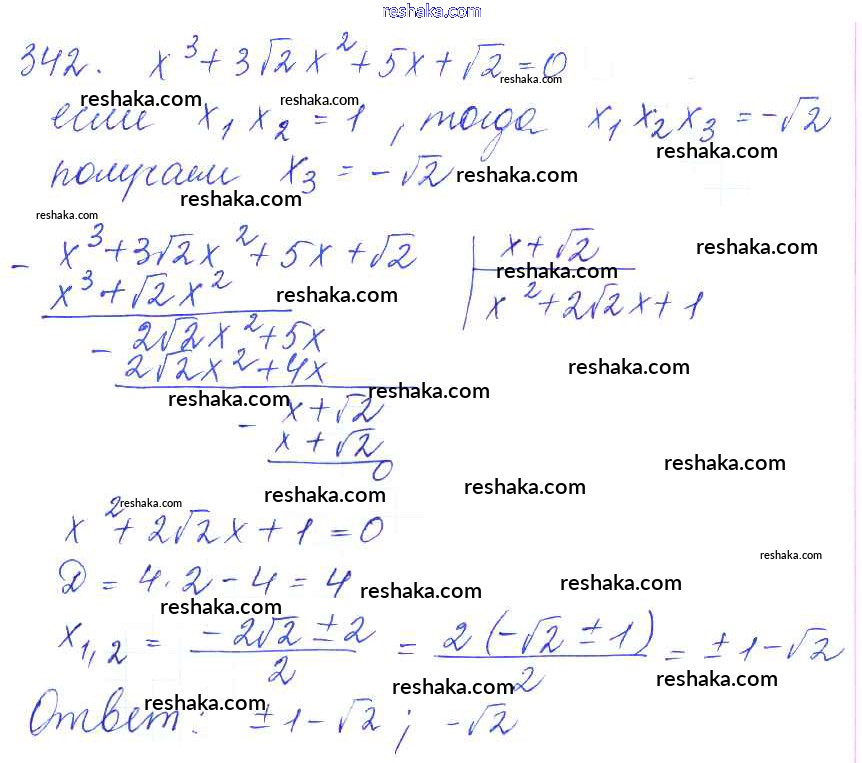 reshaka.com
342. x³ + 3√2 x² + 5x + √2 = 0
reshaka.com
reshaka.com reshaka.com
если x₁ x₂ = 1, тогда x₁ x₂ x₃ = -√2
reshaka.com
получаем x₃ = -√2 reshaka.com
reshaka.com
reshaka.com
- x³ + 3√2 x² + 5x + √2 | x + √2 reshaka.com
reshaka.com
x³ + √2 x² reshaka.com x² + 2√2 x + 1
- 2√2 x² + 5x
2√2 x² + 4x reshaka.com
reshaka.com reshaka.com
- x + √2
x + √2
reshaka.com
0
reshaka.com reshaka.com
reshaka.com
x² + 2√2 x + 1 = 0
reshaka.com
D = 4·2 - 4 = 4 reshaka.com reshaka.com
reshaka.com
x₁,₂ = (-2√2 ± 2)/2 = 2(-√2 ± 1)/2 = ±1 - √2
reshaka.com reshaka.com
reshaka.com reshaka.com
Ответ: ±1 - √2 ; -√2